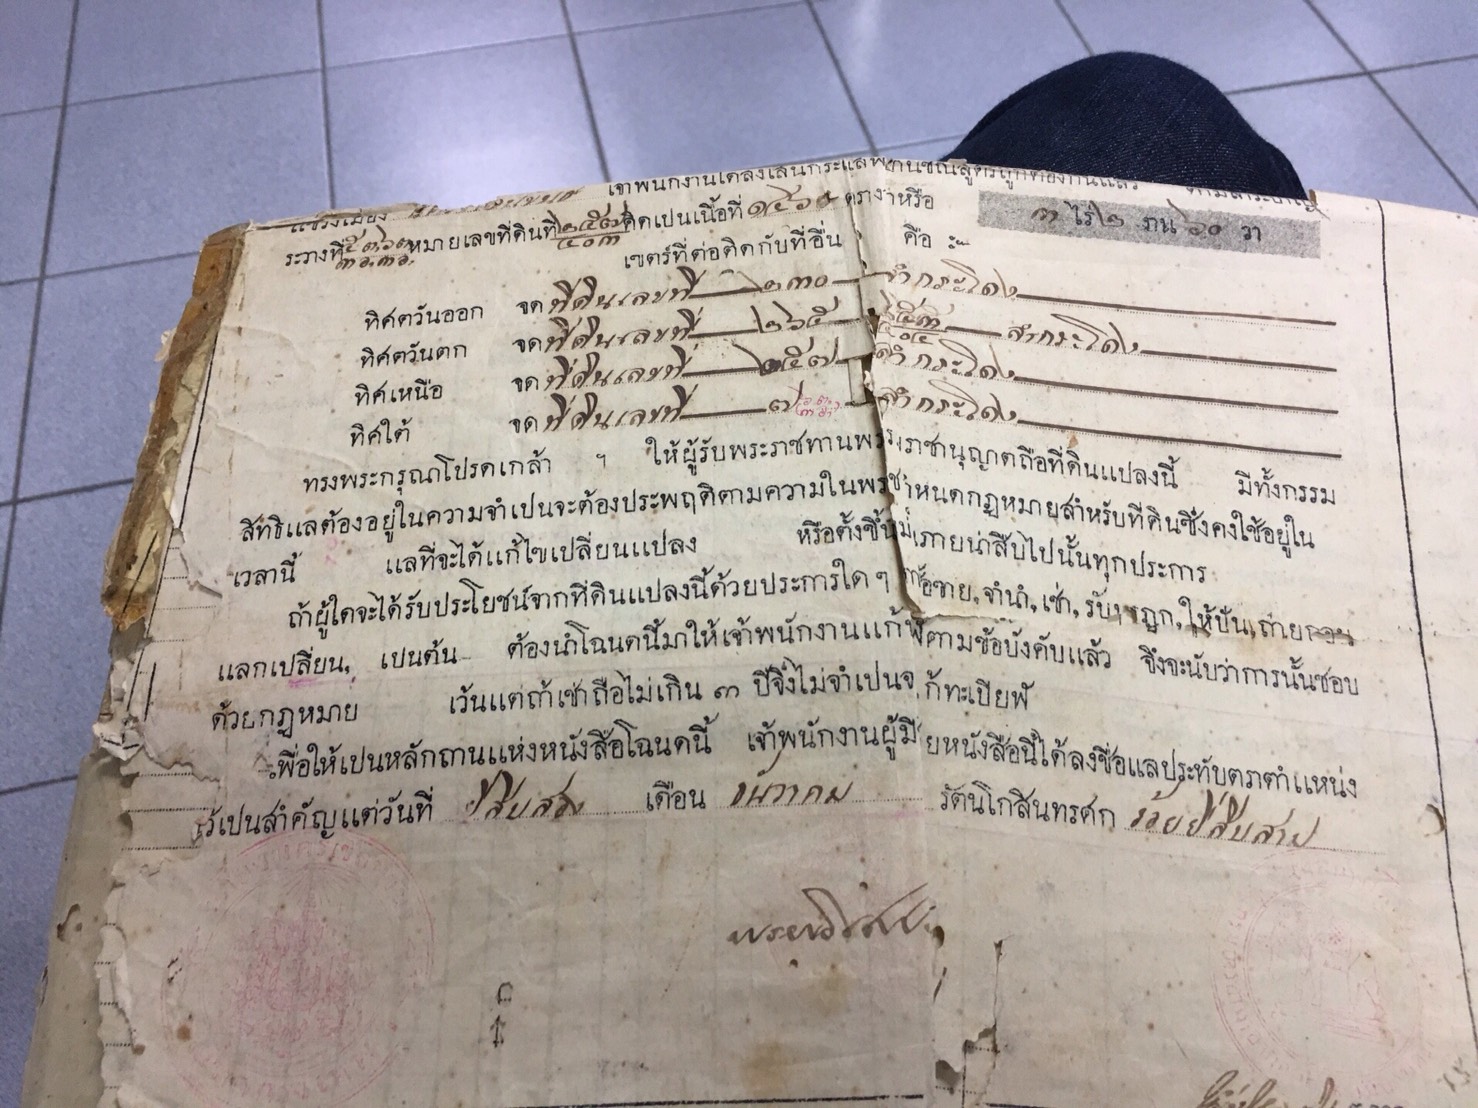 เจ้าพนักงานได้ลงเส้นกระแสพยานชัณสูตรถูกต้องกันแล้ว
ระวางที่ หมายเลขที่ดินที่ คิดเปนเนื้อที่ ๑๔๖๐ ตรางวาหรือ ๓ ไร่ ๒ งาน ๖๐ วา
เขตร์ที่ต่อติดกับที่อื่น คือ :-
ทิศตวันออก จด ที่ดินเลขที่ ๒๓๐ ลำกระโดง
ทิศตวันตก จด ที่ดินเลขที่ ๒๖๕ ลำกระโดง
ทิศเหนือ จด ที่ดินเลขที่ ๒๕๗ ลำกระโดง
ทิศใต้ จด ที่ดินเลขที่ ๗ ลำกระโดง
ทรงพระกรุณาโปรดเกล้า ฯ ให้ผู้รับพระราชทานพระราชานุญาตถือที่ดินแปลงนี้ มีทั้งกรรม
สิทธิแลต้องอยู่ในความจำเปนจะต้องประพฤติตามความในพระราชกำหนดกฎหมายสำหรับที่ดินซึ่งคงใช้อยู่ใน
เวลานี้ แลที่จะได้แก้ไขเปลี่ยนแปลง หรือตั้งขึ้นใหม่ภายน่าสืบไปนั้นทุกประการ
ถ้าผู้ใดจะได้รับประโยชน์จากที่ดินแปลงนี้ด้วยประการใด ๆ คือขาย, จำนำ, เช่า, รับมฤดก, ให้ปัน, ถ่ายถอน
แลกเปลี่ยน, เปนต้น ต้องนำโฉนดนี้มาให้เจ้าพนักงานแก้ทะเบียฬตามข้อบังคับแล้ว จึงจะนับว่าการนั้นชอบ
ด้วยกฎหมาย เว้นแต่ถ้าเช่าถือไม่เกิน ๓ ปีจึ่งไม่จำเปนจะแก้ทะเบียฬ
เพื่อให้เปนหลักถานแห่งหนังสือโฉนดนี้ เจ้าพนักงานผู้มีชื่อท้ายหนังสือนี้ได้ลงชื่อแลประทับตราตำแหน่ง
ไว้เปนสำคัญแต่วันที่ ยี่สิบสอง เดือน ธันวาคม รัตนโกสินทรศก ร้อยยี่สิบสาม